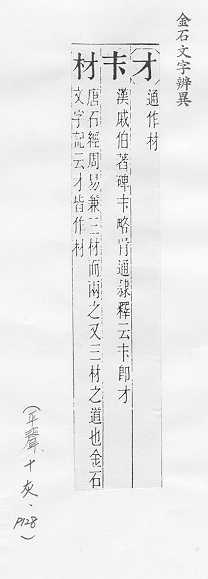 金石文字辨異
（才）
通作材
卡
漢戚伯著碑卡略肯通隸釋云卡即才
材
唐石經周易兼三材而兩之又三材之道也金石
文字記云才皆作材
（平聲十灰．P128）